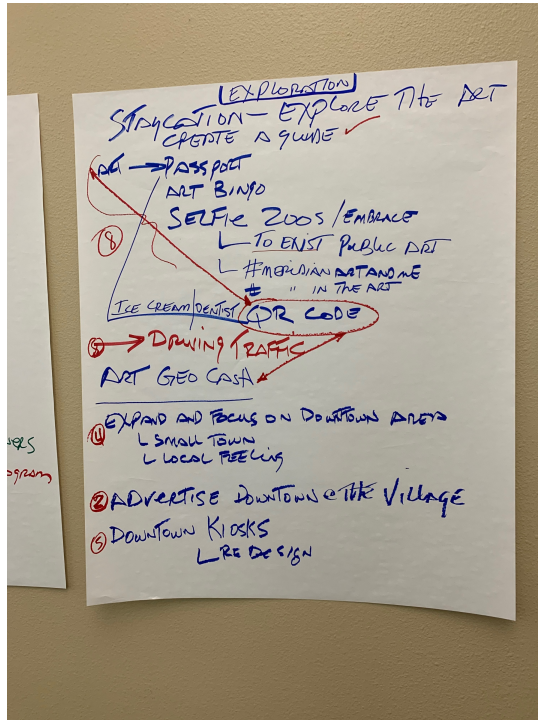 EXPLORATION
STAYCATION - EXPLORE THE ART
CREATE A GUIDE ✓
ART → PASSPORT
ART BINGO
SELFIE ZOOS / EMBRACE
TO EXIST PUBLIC ART
#MERIDIANARTANDME
# " IN THE ART
8
ICE CREAM/DENTIST QR CODE
→ DRIVING TRAFFIC
ART GEO CASH
4 EXPAND AND FOCUS ON DOWNTOWN AREA
SMALL TOWN
LOCAL FEELING
2 ADVERTISE DOWNTOWN @ THE VILLAGE
5 DOWNTOWN KIOSKS
RE DESIGN